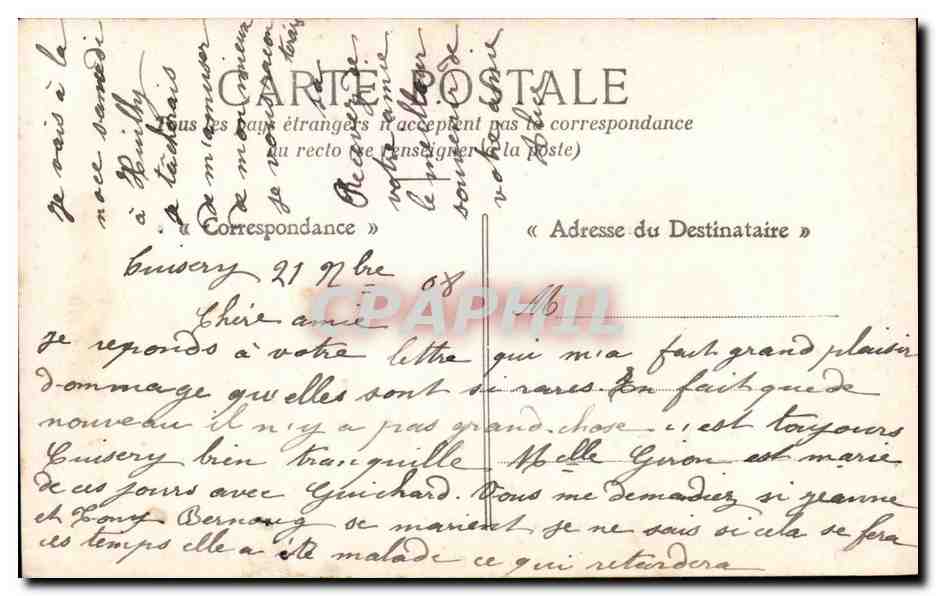 CARTE POSTALE
Tous les pays étrangers n'acceptent pas la correspondance
au recto (se renseigner à la poste)
« Correspondance »
« Adresse du Destinataire »
M
CPAPHIL
Cuisery 21 9bre 08
Chère amie
Je reponds à votre lettre qui m'a fait grand plaisir
dommage qu'elles sont si rares. En fait que de
nouveau il n'y a pas grand chose c'est toujours
Cuisery bien tranquille Melle Giron est marie
de ces jours avec Guichard. Vous me demandiez si jeanne
et Tony se marient je ne sais si cela se fera
ces temps elle a été malade ce qui retardera
je vais à la
noce samedi
à Huilly
je tâcherais
de m'amuser
de mon mieux
je vous
Recevez de
votre amie
le meilleur
souvenir de
votre amie